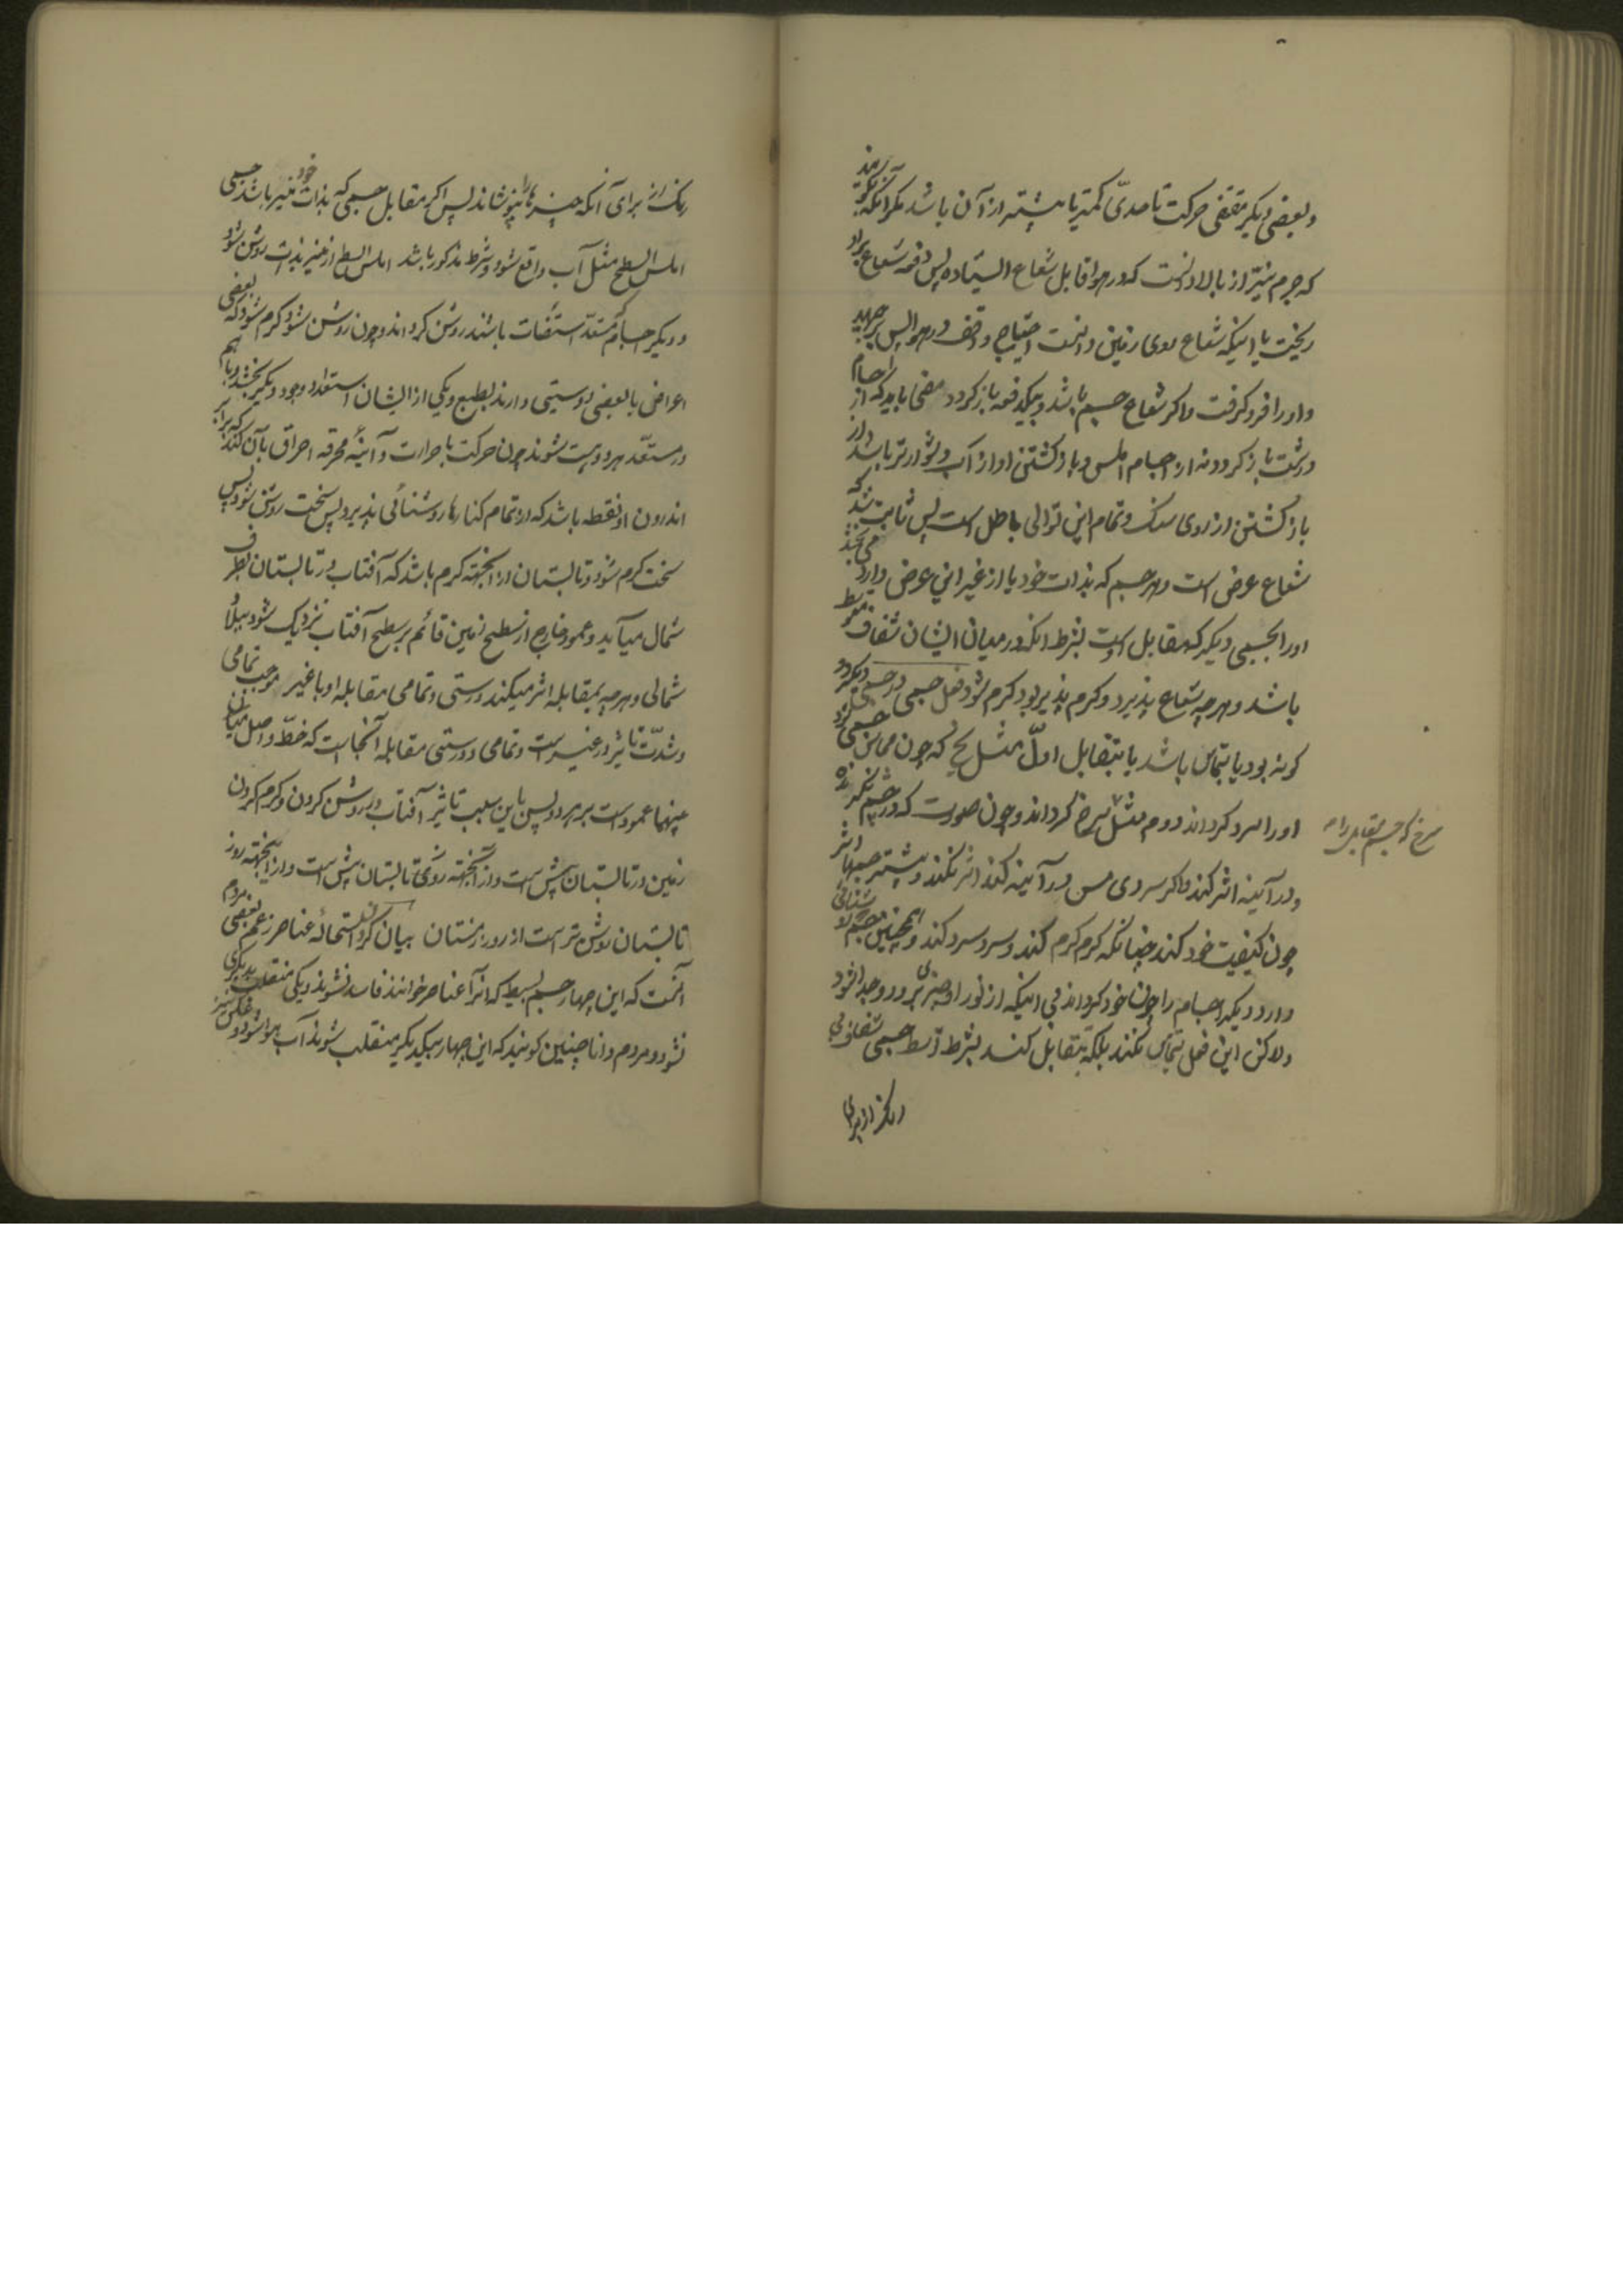 و بعضی دیگر مقتضی حرکت تا حدّی کمتر یا بیشتر از آن باشد مگر آنکه گویند
که جرم نیّر از بالا دانست که در هوا قابل شعاع ایستاده پس دفعه شعاع براو
ریخت یا اینکه شعاع سوی زمین دانست احتیاج واقف در هوا پس برجهید
و او را فرو گرفت و اگر شعاع جسم باشد و بیکدفعه باز گردد مضی باید که از اجسام
درشت باز گردد نه از اجسام املس و باز گشتن او از آب دشوارتر باشد از
باز گشتن از روی سنگ و تمام این توالی باطل است پس ثابت شد که
شعاع عرض است و هر جسم که بذات خود یا از غیر این عرض دارد می بخشد
او را بجسمی دیگر که مقابل اوست بشرط آنکه در میان ایشان شفاف متوسط
باشد و هرچه شعاع پذیرد و گرم پذیر بود گرم شود فعل جسمی در جسمی دیگر دو
گونه بود یا بتماس باشد یا بتقابل اوّل مثل یخ که چون مماس جسمی گردد
او را سرد گرداند دوم مثل سرخ گرداند و چون صورت که در چشم نگرنده
و در آینه اثر کند و اگر سر روی مس در آینه کند اثر نکند و بیشتر جسمها اثر
چون کیفیت خود کنند چنانکه گرم گرم کند و سرد سرد کند و همچنین جسم روشنائی
دارد دیگر اجسام را چون خود گرداند بی اینکه از نور او چیزی برود و جدا شود
ولاکن این فعل بتماس نکند بلکه بتقابل کند بشرط توسط جسمی شفاف بی
رنگ از برای
سرخ که جسم مقابل را
رنگ از برای آنکه چیزها را نپوشاند پس اگر مقابل جسمی که بذات خود منیر باشد جسمی
املس السطح مثل آب واقع شود و شرط مذکور باشد املس السطح از منیر بذات روشن شود
و دیگر اجسام که مستعدّ استضائت باشند روشن گرداند و چون روشن شود گرم شود که بعضی
اعراض با بعضی دوستی دارند بطبع و یکی از ایشان استعداد وجود دیگر بخشد و باهم
در مستعّد هر دو هست شوند چون حرکت با حرارت و آینهٔ محرقه احراق بآن کند که برابر
اندرون او نقطه باشد که از تمام کنارها روشنائی پذیرد پس سخت روشن شود پس
سخت گرم شود و تابستان از آنجهته گرم باشد که آفتاب در تابستان بطرف
شمال میآید و عمود خارج از سطح زمین قائم بر سطح آفتاب نزدیک شود بمیل
شمالی و هرچه بمقابله اثر میکند درستی و تمامی مقابله او با غیر موجب تمامی
و شدّت تأثیر در غیر است و تمامی و درستی مقابله آنجا است که خطّ واصل میان
بینهما عمود است بر هر دو پس باین سبب تاثیر آفتاب در روشن کردن و گرم کردن
زمین در تابستان بیش است و از آنجهته روشنی تابستان بیش است و از اینجهته روز
تابستان روشن تر است از روز زمستان بیان کردن استحالهٔ عناصر زعم بعضی مردم
آنست که این چهار جسم بسیط که آنرا عناصر خوانند فاسد نشوند و یکی منقلب بدیگری
نشود و مردم دانا چنین گویند که این چهار بیکدیگر منقلب شوند آب هوا شود و عکس نیز